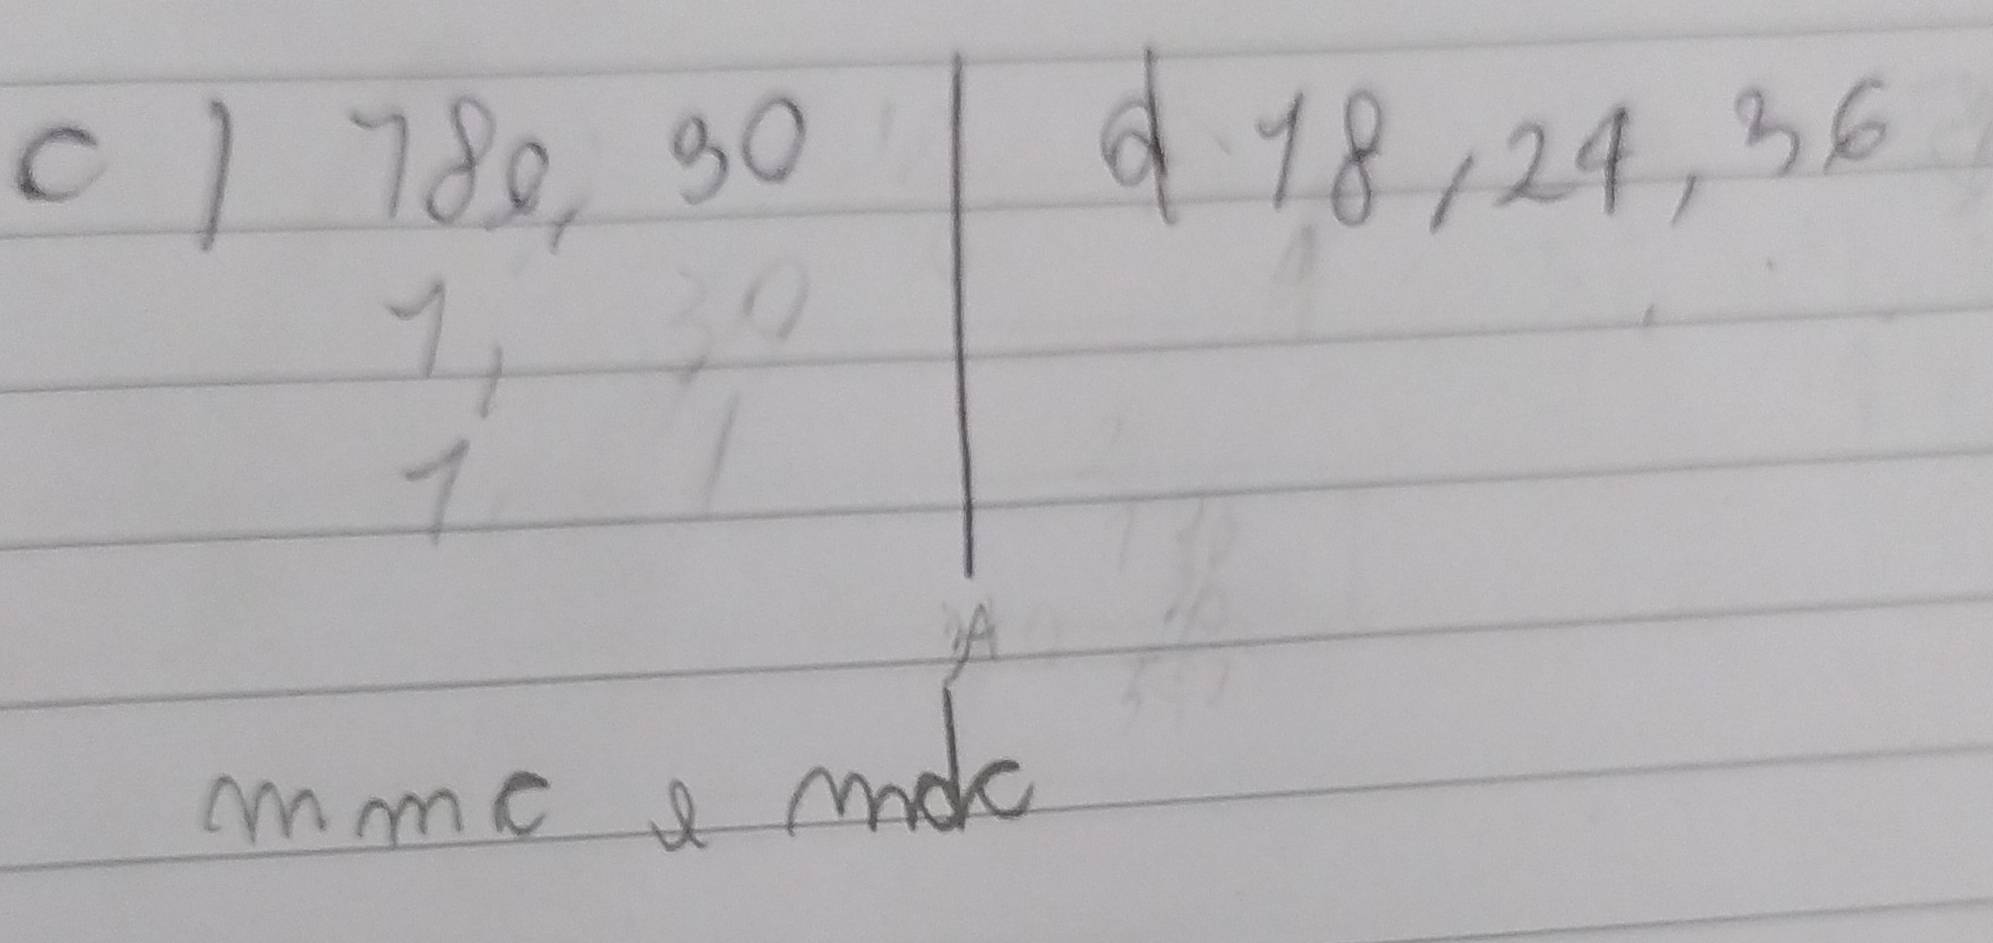 c) 180, 30 | d 18, 24, 36
1, 30
1 1
mmc e mdc